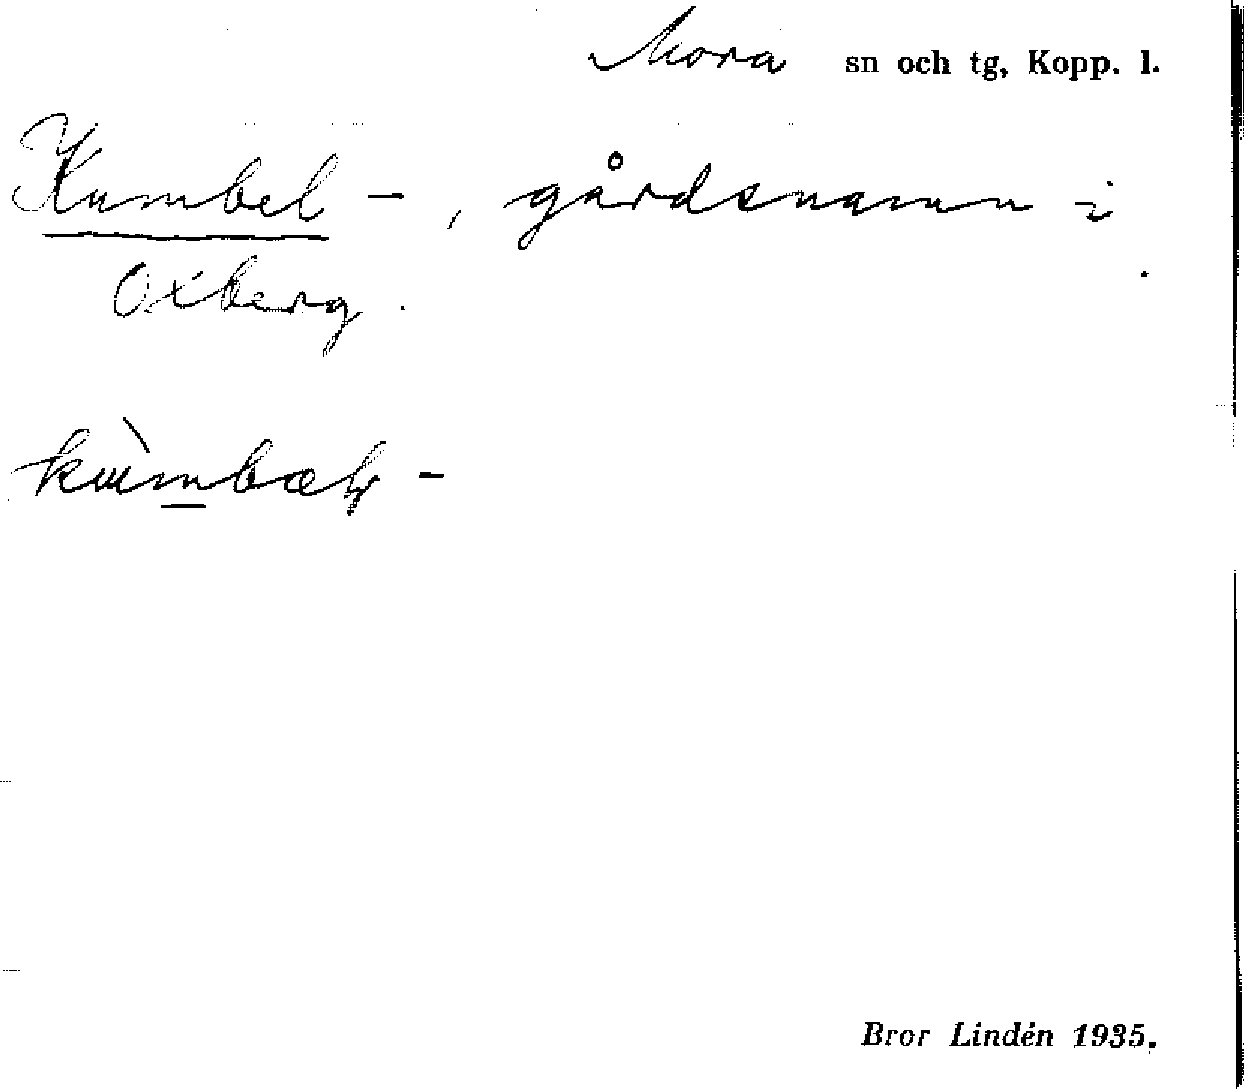 Mora sn och tg, Kopp. l.
Kumbel -, gårdsnamn i
Oxberg.
kùmbæl -
Bror Lindén 1935.